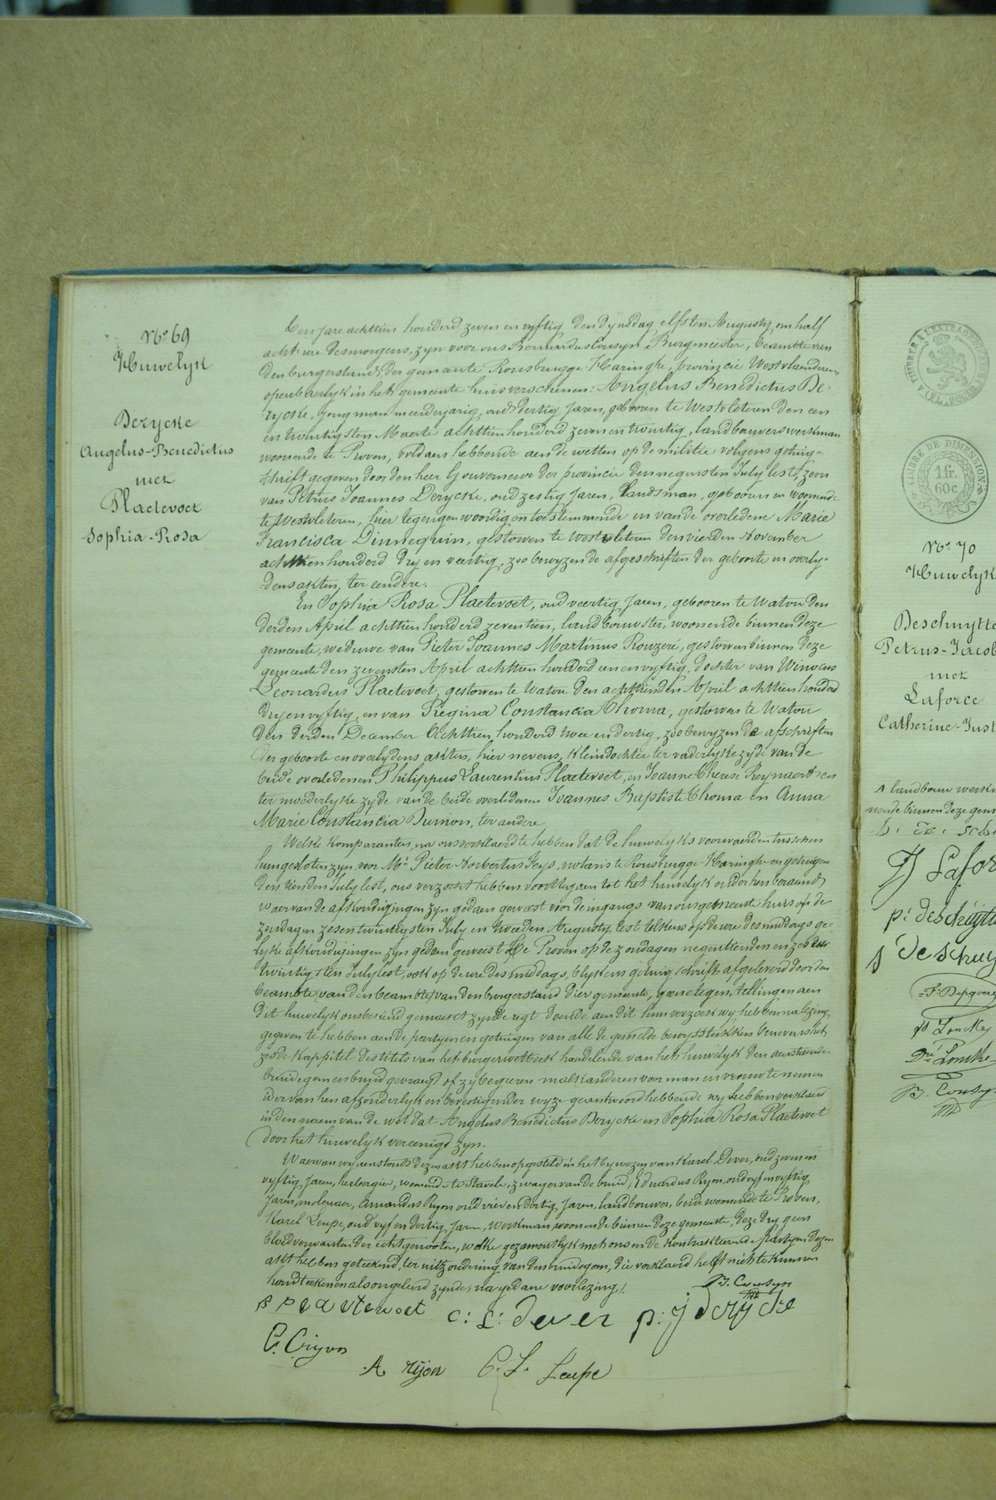 N° 69
Huwelyk
Derycke
Angelus-Benedictus
met
Plaetevoet
Sophia-Rosa
Ten jare achttien honderd zeven en vyftig, den dynsdag elfsten Augusty, om half
acht ure des morgens, zyn voor ons Bernardus Cousyn, Burgmeester, beambte van
den burgerstand der gemeente Rousbrugge-Haringhe, provincie Westvlanderen,
openbaerlyk in het gemeente huis verschenen: Angelus Benedictus De-
rycke, jongman meerderjarig, oud dertig Jaren, geboren te Westvleteren den een
en twintigsten Maerte achttien honderd zeven en twintig, landbouwers werkman
woonende te Proven, voldaen hebbende aen de wetten op de militie volgens getuig-
schrift gegeven door den heer Gouverneur der provincie den negensten July lest, zoon
van Petrus Joannes Derycke, oud zestig jaren, landsman, geboren en woonende
te Westvleteren, hier tegenwoordig en toestemmende en van de overledene Marie
Francisca Dinnequin, gestorven te Westvleteren den vierden November
achttien honderd dry en veertig, zoo bewyzen de afgeschriften der geboorte en overly-
dens akten, ter eendere.
En Sophia Rosa Plaetevoet, oud veertig Jaren, gebooren te Watou den
derden April achttien honderd zeventien, landbouwster, woonende binnen deze
gemeente, weduwe van Pieter Joannes Martinus Rouzeré, gestorven binnen deze
gemeente den zevensten April achttien honderd een en vyftig, dochter van Winocus
Leonardus Plaetevoet, gestorven te Watou den achttienden April achttien honderd
dry en vyftig, en van Regina Constancia Thoma, gestorven te Watou
den derden December achttien honderd twee en dertig, zoo bewyzen de afschriften
der geboorte en overlydens akten, hier nevens, kleindochter ter vaderlyke zyde van de
beide overledenen Philippus Laurentius Plaetevoet, en Joanne Therese Reynaert en
ter moederlyke zyde van de beide overledenen Joannes Baptiste Thoma en Anna
Marie Constancia Dumon, ter andere.
Welke komparanten, na ons verklaerd te hebben dat de huwelyks voorwaerden tusschen
hun gesloten zyn voor Mr Pieter Norbertus Feys, notaris te Rousbrugge-Haringhe en getuigen
den tienden July lest, ons verzocht hebben voort te gaen tot het huwelyk onder hen beraemd
waervan de afkondigingen zyn gedaen geweest voor de ingangs van ons gemeente huis op de
zondagen zes en twintigsten July en tweeden Augusty lest telkens op de ure des middags ge-
lyke afkondigingen zyn gedaen geweest te Proven op de zondagen negentienden en zes en
twintigsten July lest, ook op de ure des middags, blykens getuigschrift afgeleverd door den
beambte van den burgerstand dier gemeente, geene tegenstellingen aen
dit huwelyk ons bekend gemaekt zynde, regt doende aen dit hun verzoek wy hebben na lezing
gegeven te hebben aen de partyen en getuigen van alle de gemelde bewysstukken benevens het
zesde kappitel des titels van het burgerwetboek handelende van het huwelyk den aenstaende
bruidegom en bruid gevraegd of zy begeeren malkanderen voor man en vrouw te nemen
ider van hen afzonderlyk en bevestigender wyze geantwoord hebbende wy hebben verklaerd
in den naem van de wet dat Angelus Benedictus Derycke en Sophia Rosa Plaetevoet
door het huwelyk vereenigd zyn.
Waervan wy aenstonds deze akt hebben opgesteld in het bywezen van Karel Dever, oud zeven en
vyftig Jaren, herbergier, woonende te Stavele, zwager van de bruid, Eduardus Ryon, oud vyf en vyftig
Jaren, molenaer, Amandus Ryon oud vier en dertig Jaren, landbouwer, beide woonende te Proven,
Karel Leupe, oud vyf en dertig Jaren, werkman, woonende binnen deze gemeente, deze dry geen
bloedverwanten der echtgenooten, welke gezamentlyk met ons en de kontrakterende partyen dezen
akt hebben geteekend, ter uitzondering van den bruidegom, die verklaerd heeft niet te kunnen
handteekenen als ongeleerd zynde, na gedane voorlezing.
B. Cousyn
s r plaetevoet
c: L: dever
p: j derycke
E. Rÿon
A rÿon
C. L. Leupe
TIMBRE DE DIMENSION
1 fr.
60 c
N° 70
Huwelyk
Deschuytte
Petrus-Jacob
met
Laforce
Catherine-Just
p: deschuytt